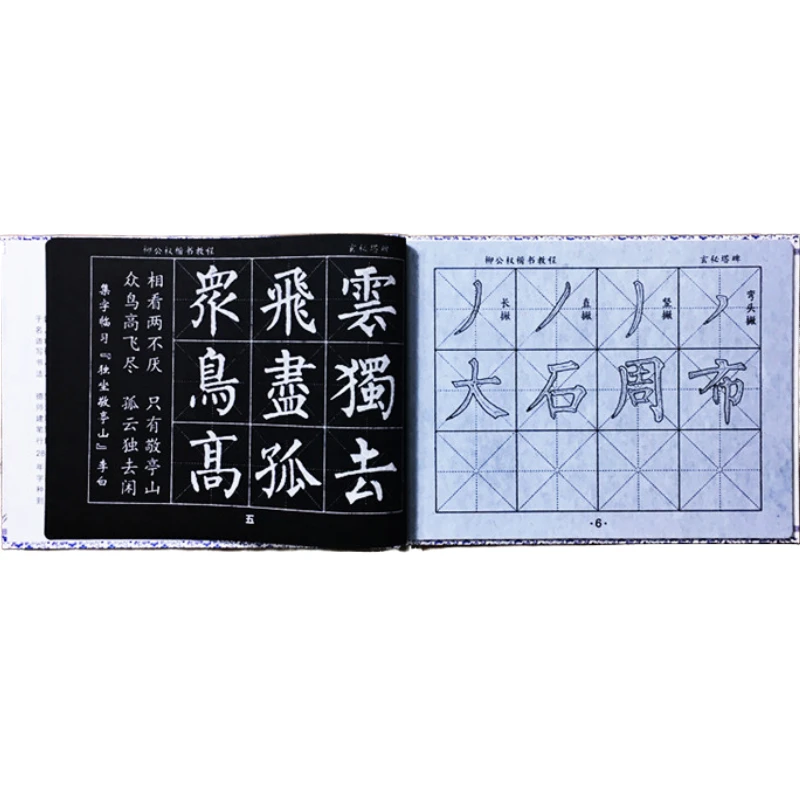 柳公权楷书教程 玄秘塔碑
集字临习『独坐敬亭山』李白
众鸟高飞尽 孤云独去闲
相看两不厌 只有敬亭山
衆鳥高
飛盡孤
雲獨去
五
柳公权楷书教程 玄秘塔碑
长撇
直撇
竖撇
弯头撇
大石周布
·6·